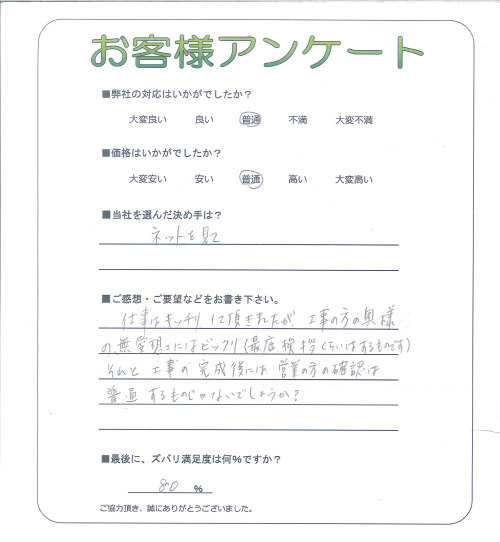 お客様アンケート
■弊社の対応はいかがでしたか？
大変良い 良い 普通 不満 大変不満
■価格はいかがでしたか？
大変安い 安い 普通 高い 大変高い
■当社を選んだ決め手は？
ネットを見て
■ご感想・ご要望などをお書き下さい。
仕事はキッチリして頂きましたが、工事の方の奥様
の無愛想さにはビックリ(最低挨拶くらいはするものです)
それと工事の完成後には営業の方の確認は
普通するものじゃないでしょうか？
■最後に、ズバリ満足度は何％ですか？
80 %
ご協力頂き、誠にありがとうございました。